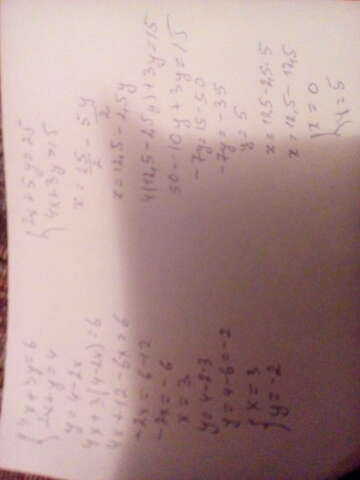 {4x+3y=6
2x+y=4
y=4-2x
4x+3(4-2x)=6
4x+12-6x=6
-2x=6-12
-2x=-6
x=3
y=4-2·3
y=4-6=-2
{x=3
y=-2
{2x+5y=25
4x+3y=15
x=25/2-5y/2
x=12,5-2,5y
4(12,5-2,5y)+3y=15
50-10y+3y=15
-7y=15-50
-7y=-35
y=5
x=12,5-2,5·5
x=12,5-12,5
{x=0
y=5